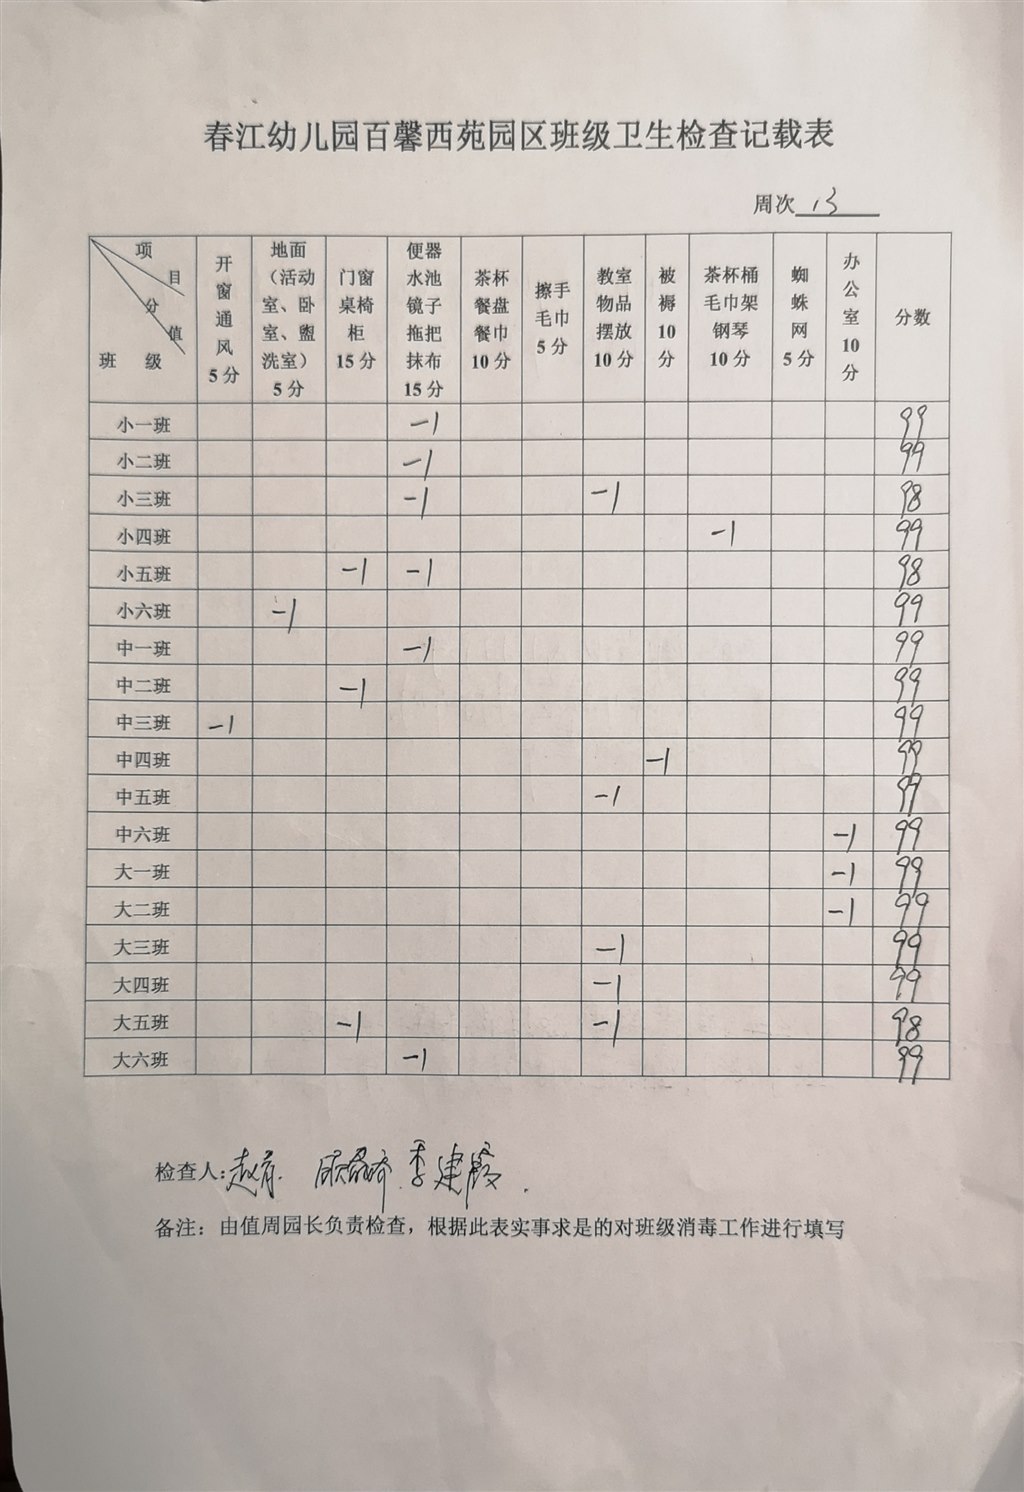 春江幼儿园百馨西苑园区班级卫生检查记载表
周次 13
项目 分值 班级 开窗通风5分 地面（活动室、卧室、盥洗室）5分 门窗桌椅柜15分 便器水池镜子拖把抹布15分 茶杯餐盘餐巾10分 擦手毛巾5分 教室物品摆放10分 被褥10分 茶杯桶毛巾架钢琴10分 蜘蛛网5分 办公室10分 分数
小一班 -1 99
小二班 -1 99
小三班 -1 -1 98
小四班 -1 99
小五班 -1 -1 98
小六班 -1 99
中一班 -1 99
中二班 -1 99
中三班 -1 99
中四班 -1 99
中五班 -1 99
中六班 -1 99
大一班 -1 99
大二班 -1 99
大三班 -1 99
大四班 -1 99
大五班 -1 -1 98
大六班 -1 99
检查人: 李建霞
备注：由值周园长负责检查，根据此表实事求是的对班级消毒工作进行填写